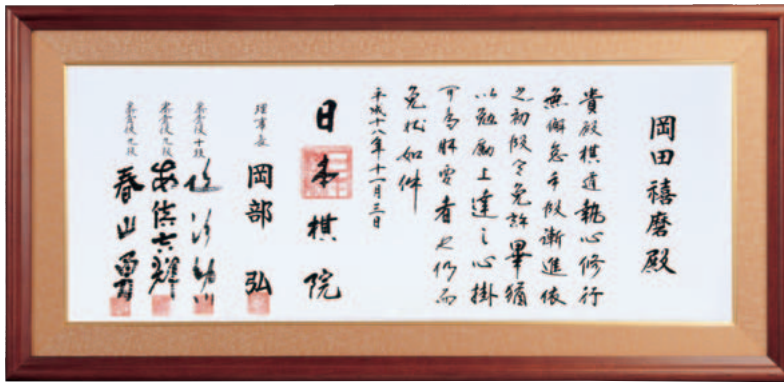 岡田禧磨殿
貴殿棋道執心修行
無懈怠手段漸進依
之初段令免許畢猶
以勉励上達之心掛
可為肝要者也仍而
免状如件
平成十八年十一月三日
日本棋院
理事長 岡部 弘
審査役十段 趙治勲
審査役九段 安倍吉輝
審査役九段 春山勇